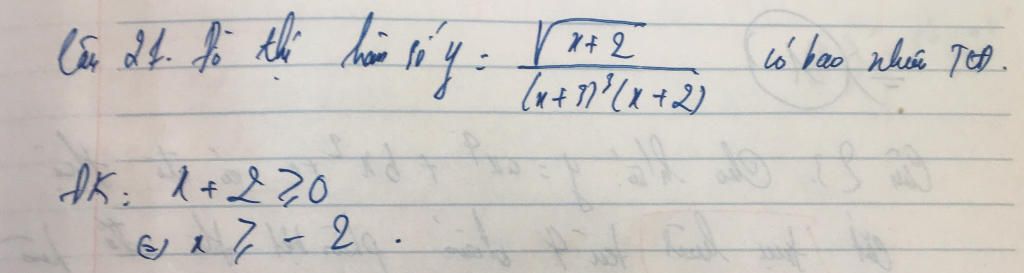 Câu 21. Đồ thị hàm số y = √(x+2) / (x+3)³(x+2) có bao nhiêu TCĐ.
ĐK: x + 2 ≥ 0
⇔ x ≥ - 2 .